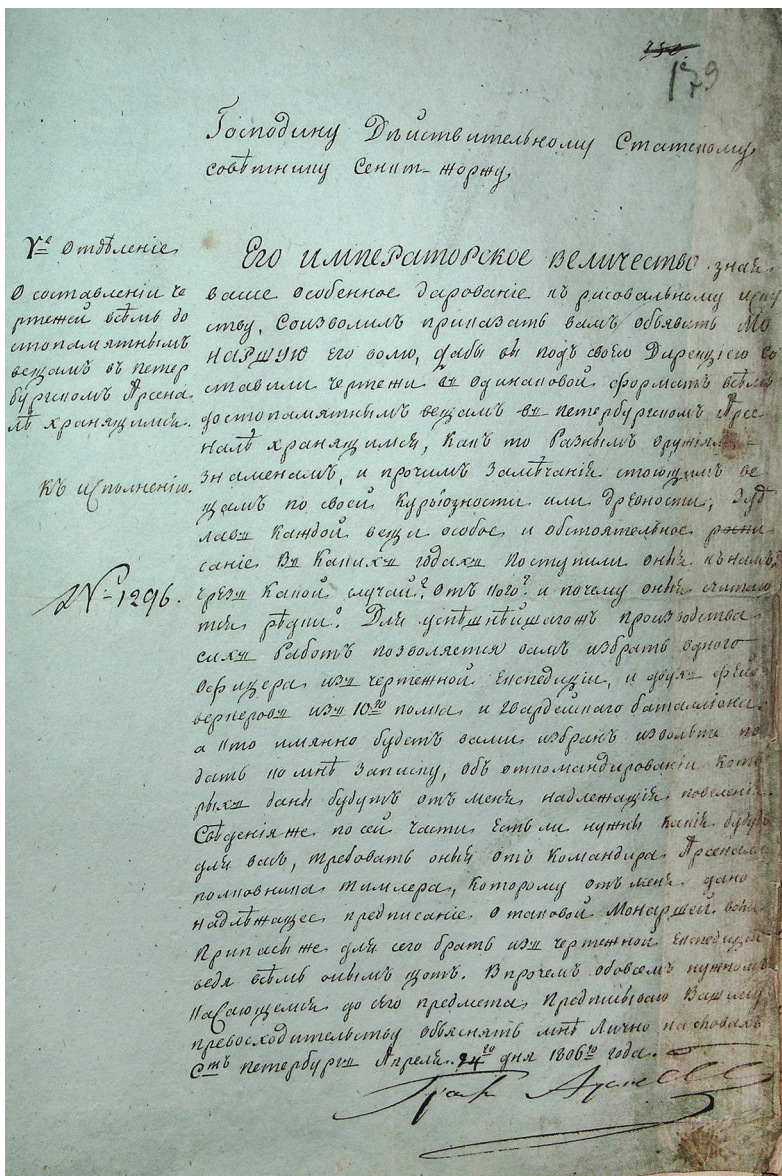 179
Господину Дѣйствительному Статскому
совѣтнику Сент-жоржу
Уе Отдѣленіе
О составленіи че
ртежей всѣмъ до
стопамятнымъ
вещамъ въ петер
бургскомъ Арсена
лѣ хранящимся.
Къ исполненію.
№ 1296.
Его императорское величество зная
ваше особенное дарованіе къ рисовальному
ству, Соизволилъ приказать вамъ объявить Мо
наршую его волю, дабы вы подъ своею Дирекціею со
ставили чертежи въ одинаковой форматъ всѣмъ
достопамятнымъ вещамъ въ петербургскомъ Арсе
налѣ хранящимся, какъ то Разнымъ оружіямъ
знаменамъ, и прочимъ Замѣчанія стоющимъ ве
щамъ по своей Курьюзности или древности, Здѣ
лавъ каждой вещи особое и обстоятельное
саніе Въ Какихъ годахъ поступили оныя къ намъ?
чрезъ Какой случай? отъ кого? и почему оныя счита
тся рѣдки? Для успѣшнѣйшагожъ производства
сихъ Работъ позволяется вамъ избрать одного
Офицера изъ чертежной Експедиціи, и двухъ фей
верверовъ изъ 10го полка и Гвардейскаго баталліона
а кто имянно будетъ вами избранъ извольте по
дать ко мнѣ Записку, объ откомандированіи кото
рыхъ даны будутъ отъ меня надлежащія повеленія
Свѣденія же по сей части Естьли нужны какія будутъ
для васъ, требовать оныя отъ Командира Арсенала
полковника тиллера, которому отъ меня дано
надлѣжащее предписаніе о таковой Монаршей воли
Припасы же для сего брать изъ чертежной Експедиціи
ведя всѣмъ онымъ щотъ. Впрочемъ обовсемъ нужномъ
касающемся до сего предмета предписываю Вашему
превосходительству объяснять мнѣ Лично на словахъ
Стъ петербургъ Апреля 24го дня 1806го года.
Графъ